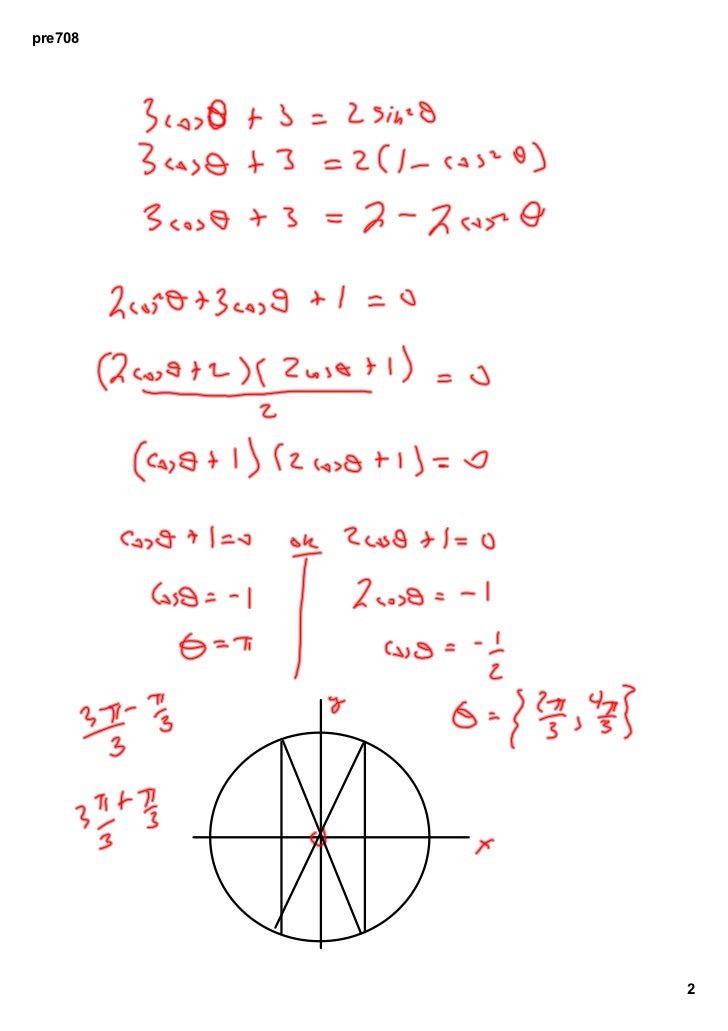 pre708
3cosθ + 3 = 2 sin²θ
3cosθ + 3 = 2(1 - cos²θ)
3cosθ + 3 = 2 - 2cos²θ
2cos²θ + 3cosθ + 1 = 0
(2cosθ + 2)(2cosθ + 1) = 0
2
(cosθ + 1)(2cosθ + 1) = 0
cosθ + 1 = 0 or 2cosθ + 1 = 0
cosθ = -1 2cosθ = -1
θ = π cosθ = -1/2
3π/3 - π/3 y θ = {2π/3, 4π/3}
3π/3 + π/3
x
2